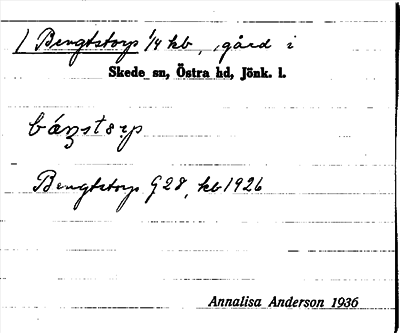 Bengtstorp 1/4 kb, gård i
Skede sn, Östra hd, Jönk. l.
Bengtstorp G28, kb 1926
Annalisa Anderson 1936